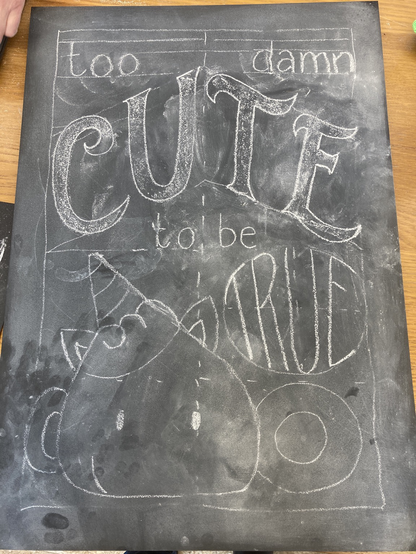 too damn
CUTE
to be
TRUE